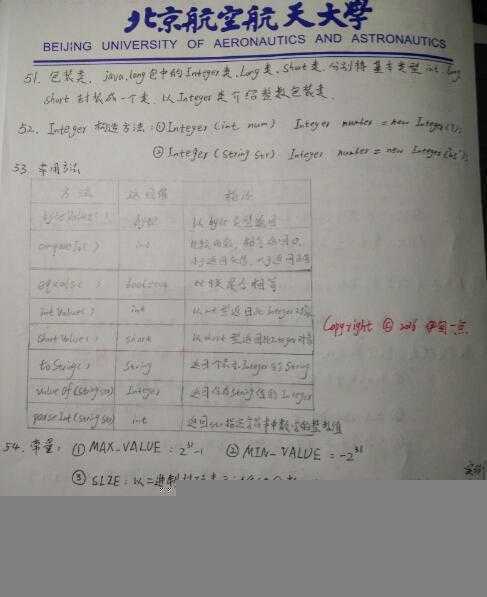 北京航空航天大学
BEIJING UNIVERSITY OF AERONAUTICS AND ASTRONAUTICS
51. 包装类. java.long包中的Integer类.Long类.Short类.分别将基本类型int.long
short封装成一个类.以Integer类介绍整数包装类.
52. Integer构造方法:①Integer(int num) Integer number = new Integer(7);
②Integer(String str) Integer number = new Integer(
53. 常用方法
方法 返回值 描述
byteValue() byte 以byte类型返回
compareTo() int 相等返回0.
equals() boolean 是否相等
intValue() int 以int型返回此Integer对象
Copyright © 伊甸一点
shortValue() short 以short型返回此Integer对象
toString() String 返回一个表示Integer的String
valueOf(String str) Integer 返回保存String值的Integer
parseInt(String str) int 返回str指定字符串中数字的整数值
54. 常量: ① MAX_VALUE: 2³¹-1 ② MIN_VALUE = -2³¹
③ SIZE: 以二进制